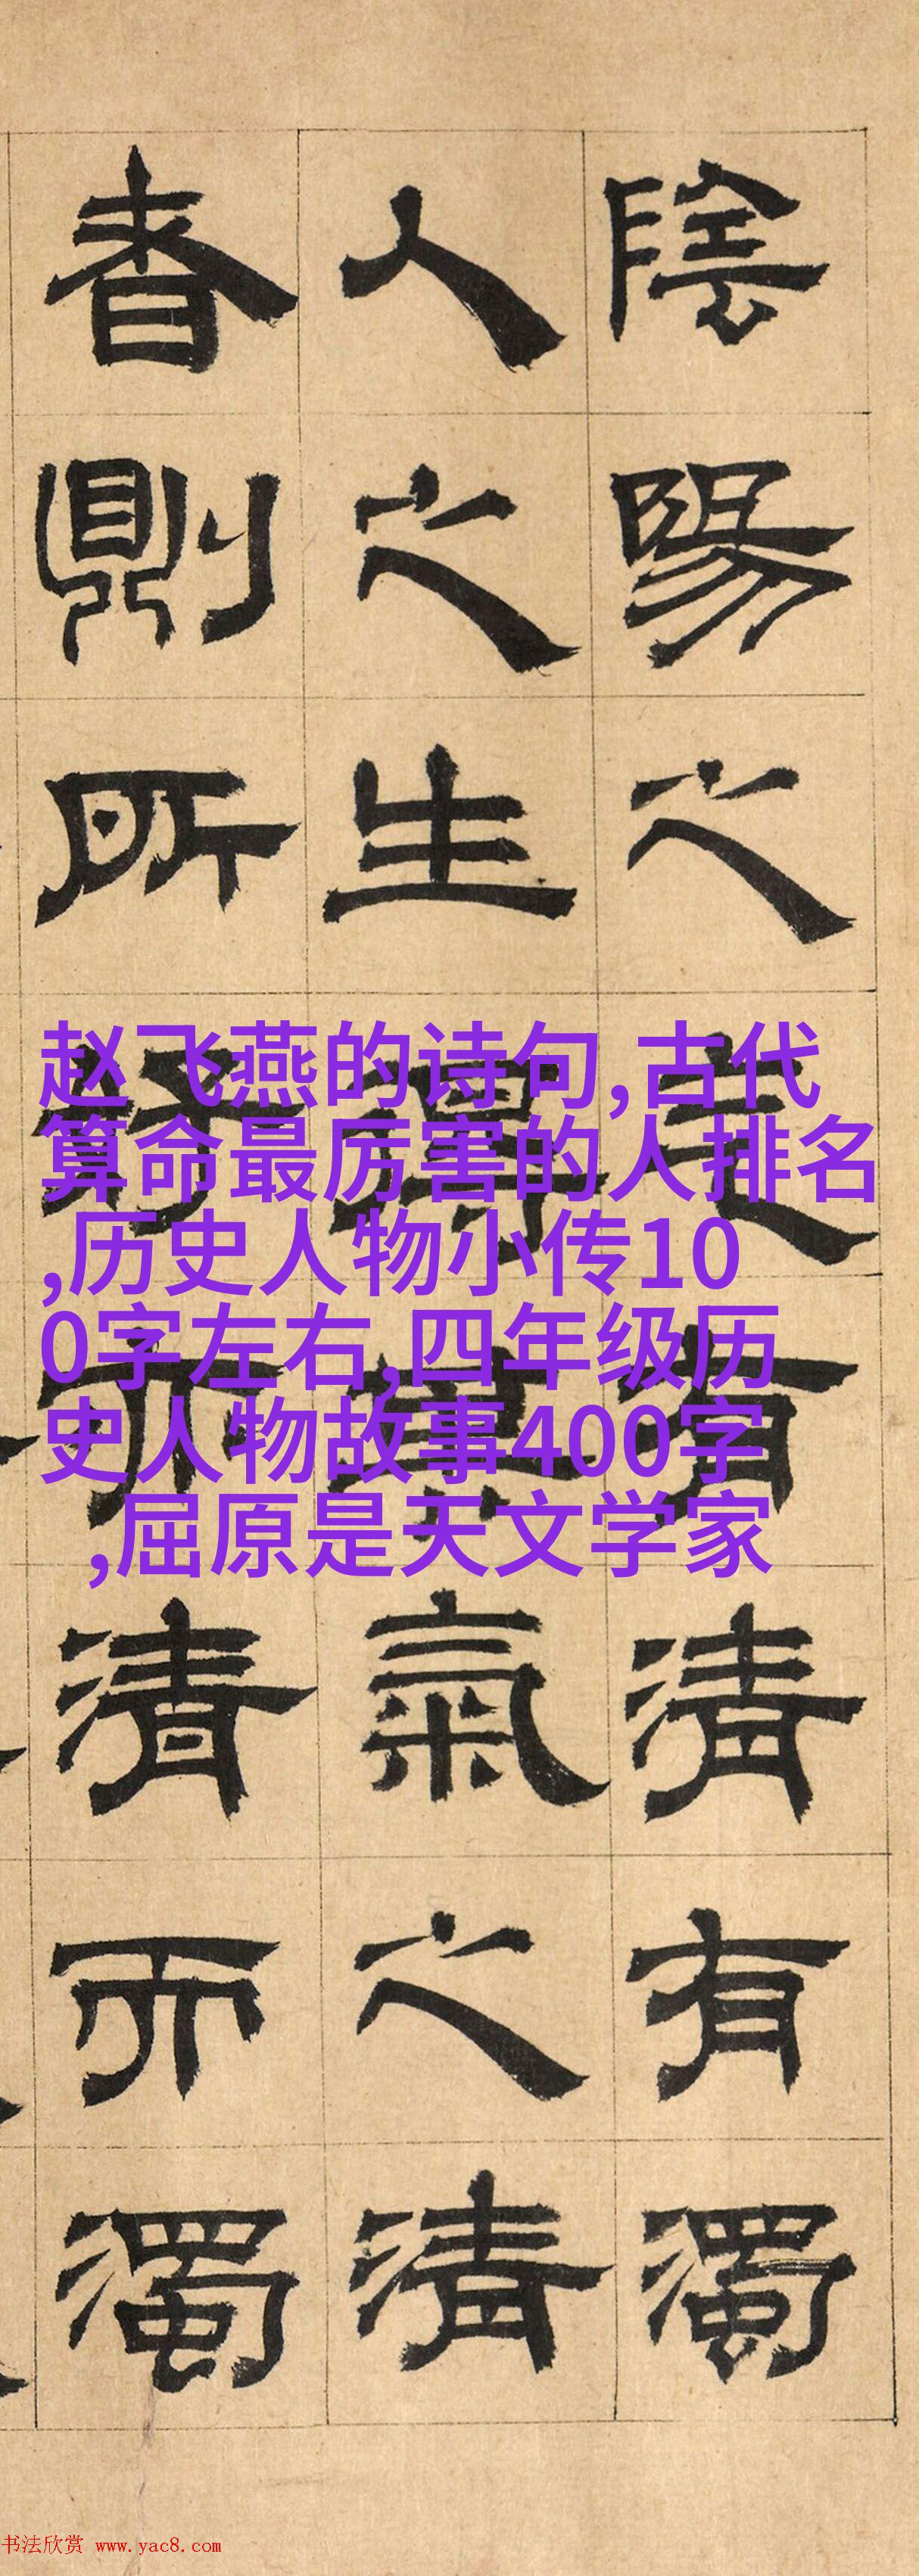 陰陽之气有清有濁
人之生其氣之清
者則所好亦清而濁
赵飞燕的诗句,古代
算命最厉害的人排名
,历史人物小传10
0字左右,四年级历
史人物故事400字
,屈原是天文学家
书法欣赏 www.yac8.com